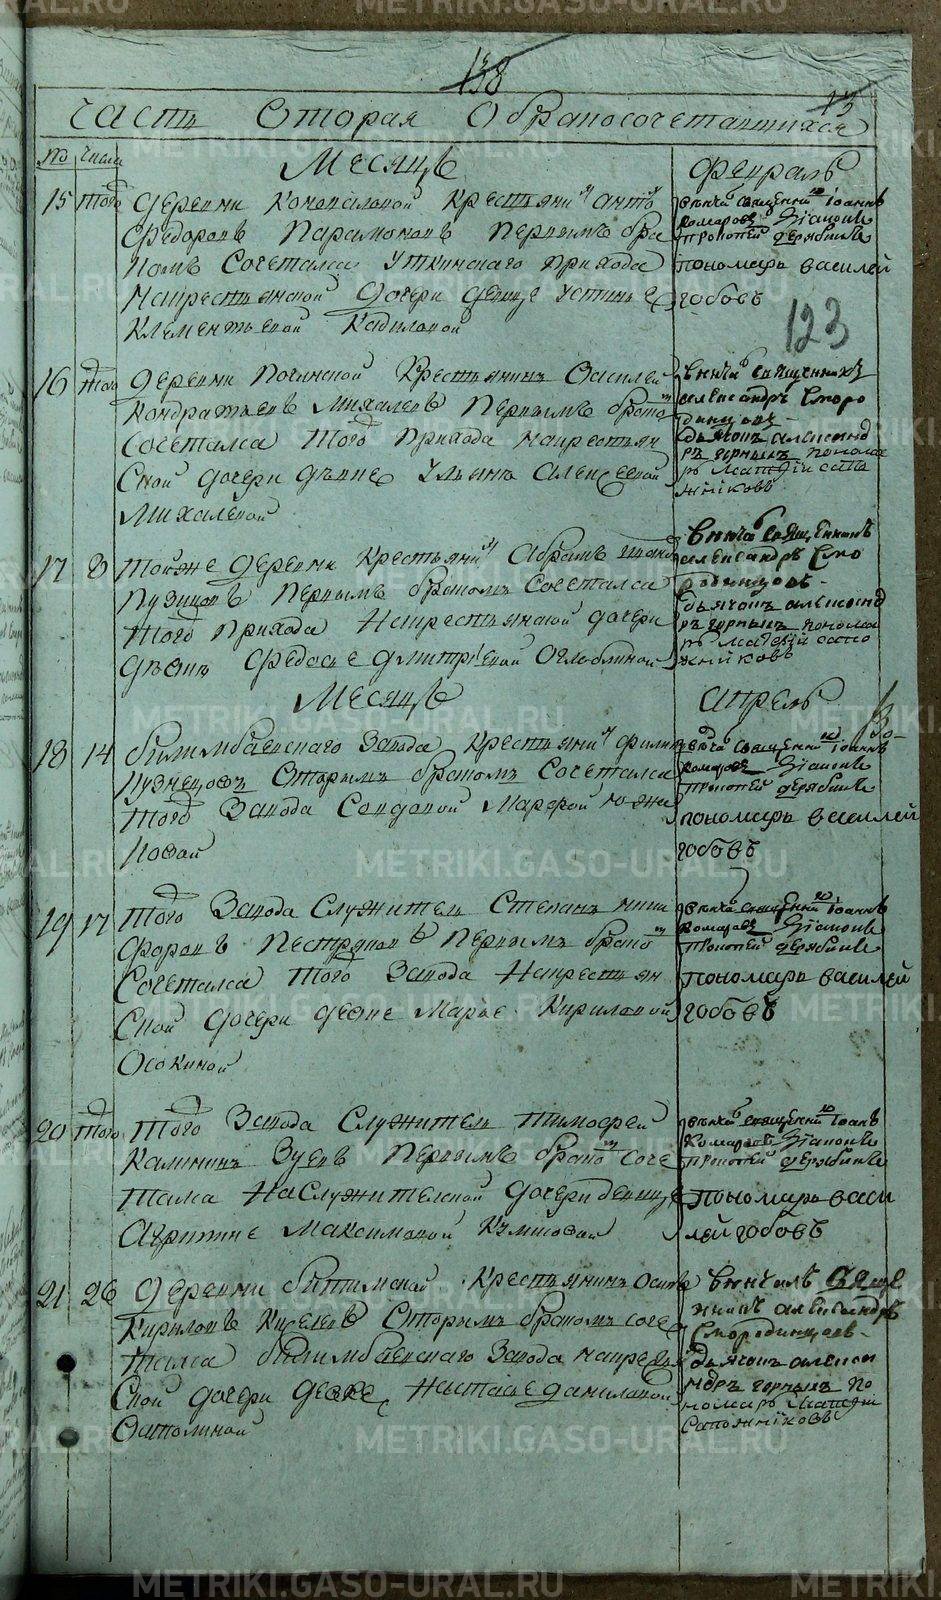 138
13
Часть Вторая О бракосочетавшихся
№ Числа Месяцъ Февраль
15 того деревни Коновалской Крестьянинъ Антонъ
Федоровъ Парамоновъ Первымъ бра
комъ Сочетался Уткинскаго прихода
на Крестьянской дочери девице Устинье
Клементьевой Кадиловой
венчалъ священникъ Иоаннъ
Комаровъ Диаконъ
Прокопей Дерябинъ
пономарь василей
гобовъ
123
16 того деревни Починской Крестьянинъ Василей
Кондратьевъ Михалевъ Первымъ бракомъ
Сочетался того Прихода на крестьян
ской дочери девице Ульяне Алексеевой
Михалевой
венчалъ священникъ
александръ Сморо
динцовъ
дьячокъ александ
ръ черныхъ понома
рь Матфей сапо
жниковъ
17 8 тойже деревни Крестьянинъ Абрамъ
Кузнцовъ Первымъ бракомъ Сочетался
того Прихода На крестьянской дочери
девице Федосье Дмитриевой Оглоблиной
венчалъ священникъ
александръ Смо
родинцовъ
дьячокъ александ
ръ черныхъ понома
рь Матвей сапо
жниковъ
Месяцъ Апрель
18 14 билимбаевскаго Завода Крестьянинъ Филипъ
Кузнецовъ Вторымъ бракомъ Сочетался
того Завода Солдовой Марфой
венчалъ священникъ Иоаннъ
Комаровъ Диаконъ
Прокопей Дерябинъ
пономарь василей
гобовъ
19 17 того Завода Служитель Степанъ Ники
форовъ Пестряковъ Первымъ бракомъ
Сочетался того Завода На крестьян
ской дочери девице Марье Кириловой
Осокиной
венчалъ священникъ Иоаннъ
Комаровъ Диаконъ
Прокопей Дерябинъ
пономарь василей
гобовъ
20 того того Завода Служитель Тимофей
Калининъ Зуевъ Первымъ бракомъ соче
тался На Служительской дочери девице
Акрипине Максимовой
венчалъ священникъ Иоаннъ
Комаровъ Диаконъ
Прокопей Дерябинъ
пономарь васи
лей гобовъ
21 26 деревни битимской Крестьянинъ Осипъ
Кириловъ Киселевъ Вторымъ бракомъ соче
тался билимбаевскаго Завода на крестьян
ской дочери девке Настасье Даниловой
Ватолиной
венчалъ Свяще
нникъ александръ
Смородинцовъ
дьячокъ алекса
ндръ черныхъ по
номарь Матфей
Сапожниковъ
METRIKI.GASO-URAL.RU